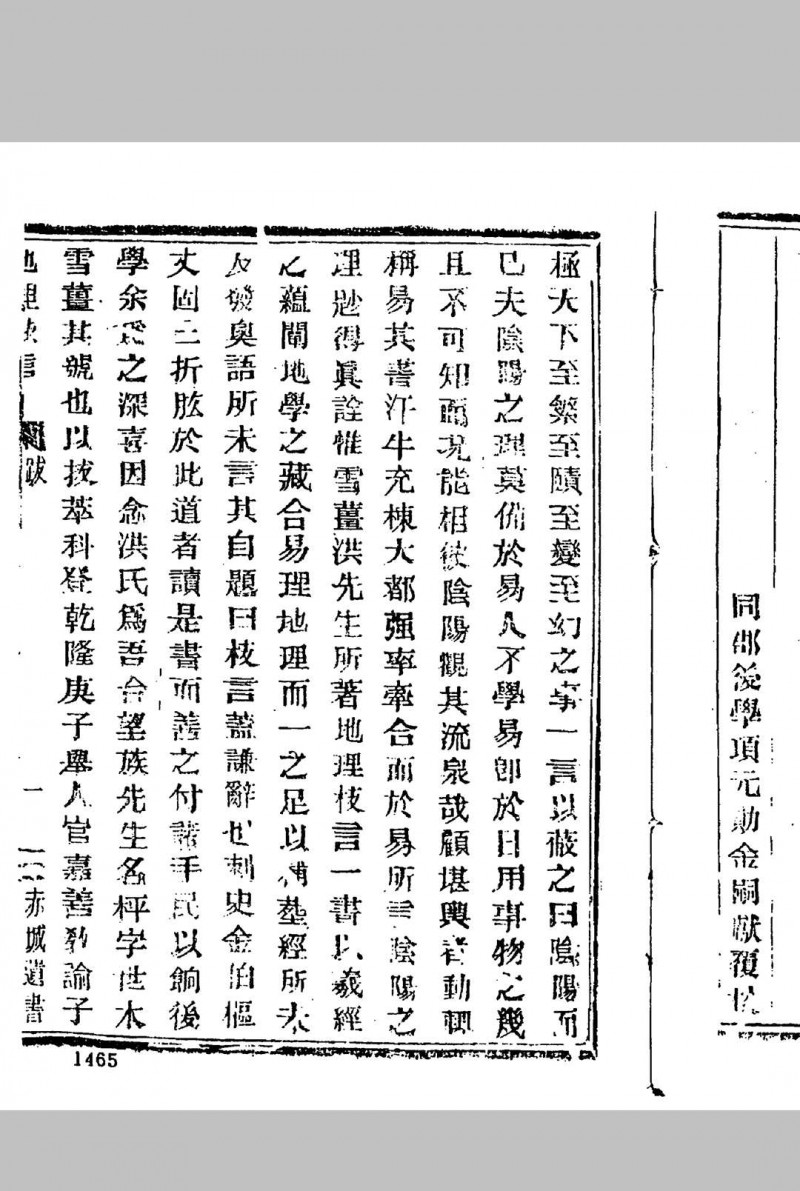 同郡後學項元勛金嗣獻覆校
極天下至繁至賾至變至幻之事一言以蔽之曰陰陽而
已夫陰陽之理莫備於易人不學易卽於日用事物之幾
且不可知而況能相彼陰陽觀其流泉哉顧堪輿者動輒
稱易其書汗牛充棟大都强率牽合而於易所言陰陽之
理尠得眞詮惟雪薑洪先生所著地理枝言一書以羲經
之蘊闡地學之藏合易理地理而一之足以補葬經所未
及發奥語所未言其自題曰枝言蓋謙辭也刺史金伯樞
丈固三折肱於此道者讀是書而善之付諸手民以餉後
學余爲之深喜因念洪氏爲吾台望族先生名枰字世木
雪薑其號也以拔萃科登乾隆庚子舉人官嘉善敎諭子
地理枝言 跋 一 赤城遺書
1465